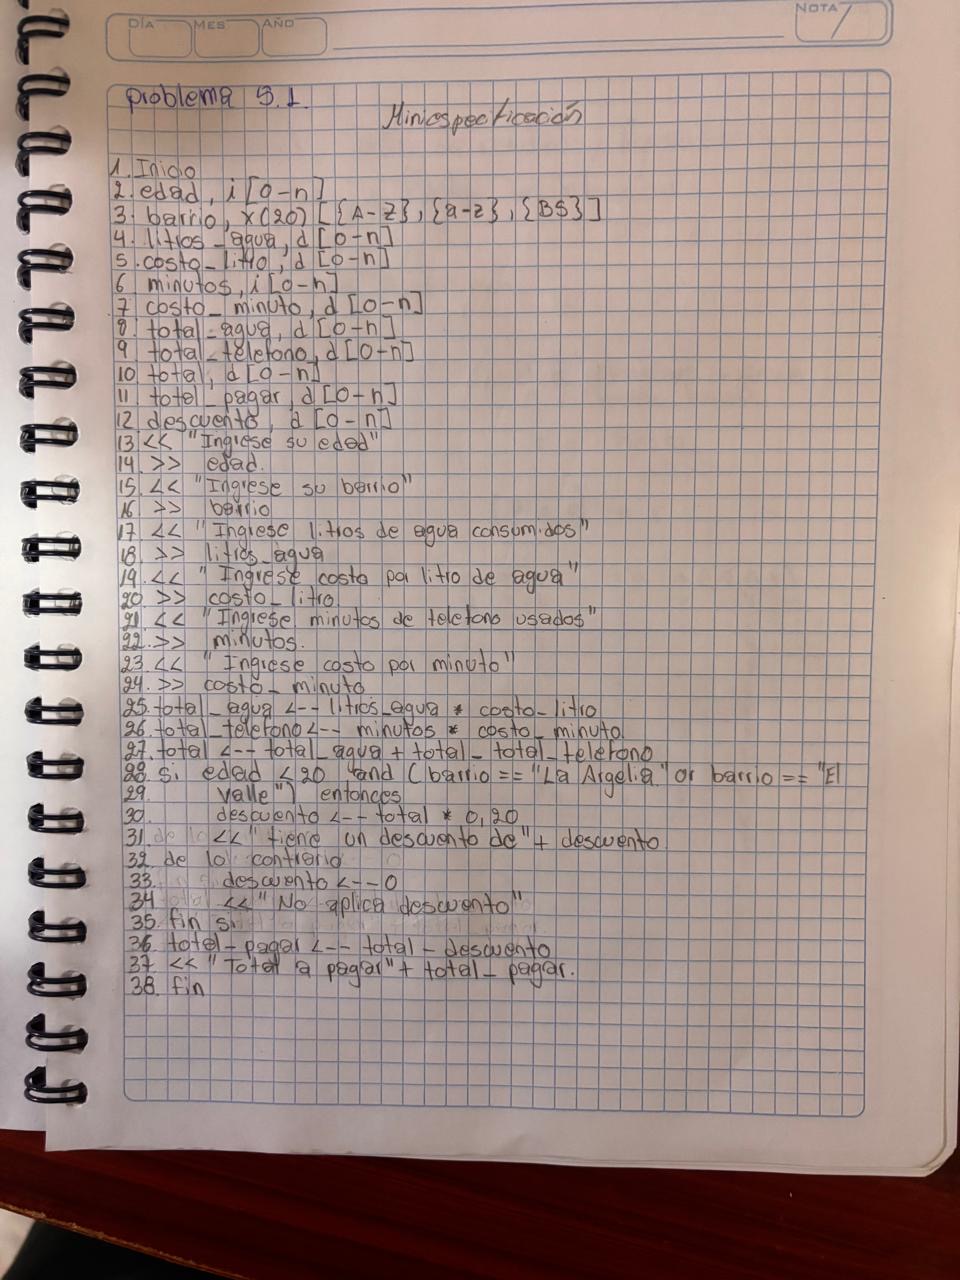 DÍA
MES
AÑO
NOTA
problema 5.1.
Miniespecificación
1. Inicio
2. edad, i [0-n]
3. barrio, x(20) [{A-Z}, {a-z}, {BS}]
4. litros_agua, d [0-n]
5. costo_litro, d [0-n]
6 minutos, i [0-n]
7 costo_minuto, d [0-n]
8. total_agua, d [0-n]
9 total_telefono, d [0-n]
10 total, d [0-n]
11 total_pagar, d [0-n]
12 descuento, d [0-n]
13 << "Ingrese su edad"
14. >> edad.
15. << "Ingrese su barrio"
16 >> barrio
17 << "Ingrese litros de agua consumidos"
18. >> litros_agua
19. << "Ingrese costo por litro de agua"
20 >> costo_litro
21 << "Ingrese minutos de telefono usados"
22. >> minutos.
23 << "Ingrese costo por minuto"
24. >> costo_minuto
25. total_agua <-- litros_agua * costo_litro
26. total_telefono <-- minutos * costo_minuto
27. total <-- total_agua + total_total_telefono
28 si edad < 20 and (barrio == "La Argelia" or barrio == "El
29. Valle") entonces
30. descuento <-- total * 0,20
31. << "tiene un descuento de" + descuento
32 de lo contrario
33. descuento <--0
34 << "No aplica descuento"
35. fin si
36. total_pagar <-- total - descuento
37 << "Total a pagar" + total_pagar.
38. fin